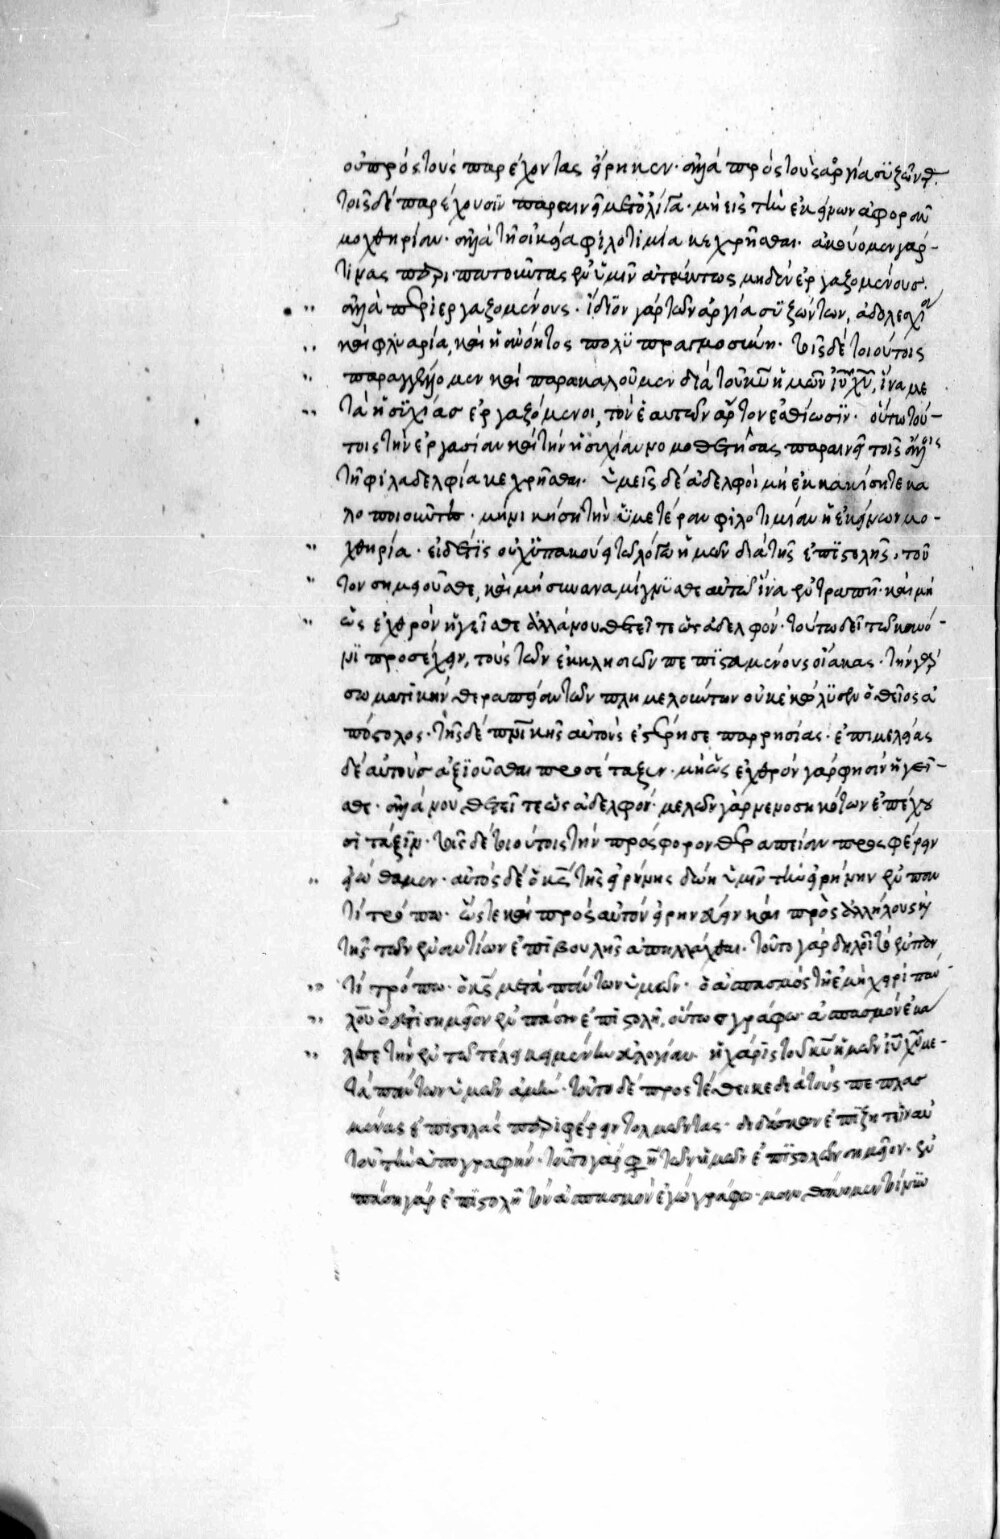 οὐ πρὸς τοὺς παρέχοντας εἴρηκεν· ἀλλὰ πρὸς τοὺς ἀργία συζῶντ
τοῖς δὲ παρέχουσιν παραινεῖ μὴ εἰς τὴν ἐκείνων ἀφορᾶν
μοχθηρίαν· ἀλλὰ τῆ οἰκεία φιλοτιμία κεχρῆσθαι· ἀκούομεν γάρ
τινας περιπατοῦντας ἐν ὑμῖν ἀτάκτως μηδὲν ἐργαζομένους·
ἀλλὰ περιεργαζομένους· ἴδιον γὰρ τῶν ἀργία συζώντων, ἀδολεσχία
καὶ φλυαρία, καὶ ἡ ἀνόητος πολυπραγμοσύνη· τοῖς δὲ τοιούτοις
παραγγέλλομεν καὶ παρακαλοῦμεν διὰ τοῦ κυ ἡμῶν ιυ χυ, ἵνα με
τὰ ἡσυχίας ἐργαζόμενοι, τὸν ἑαυτῶν ἄρτον ἐσθίωσιν· οὕτω τού
τοις τὴν ἐργασίαν καὶ τὴν ἡσυχίαν νομοθετήσας παραινεῖ τοῖς ἄλλοις
τῆ φιλαδελφία κεχρῆσθαι· ὑμεῖς δὲ ἀδελφοὶ μὴ ἐκκακήσητε κα
λοποιοῦντες· μὴ νικήση τὴν ὑμετέραν φιλοτιμίαν ἡ ἐκείνων μο
χθηρία· εἰ δέ τις οὐχ ὑπακούει τῶ λόγω ἡμῶν διὰ τῆς ἐπιστολῆς, τοῦ
τον σημειοῦσθε, καὶ μὴ συναναμίγνυσθε αὐτῶ ἵνα ἐντραπῆ· καὶ μὴ
ὡς ἐχθρὸν ἡγεῖσθε ἀλλὰ νουθετεῖτε ὡς ἀδελφόν· τούτω δεῖ τῶ κανό
νι προσέχειν, τοὺς τῶν ἐκκλησιῶν πεπιστευμένους οἴακας· τὴν γὰρ
σωματικὴν θεραπείαν τῶν πλημμελούντων οὐκ ἐκώλυσεν ὁ θεῖος ἀ
πόστολος· τῆς δὲ αὐτοὺς ἐστέρησε παρρησίας· ἐπιμελείας
δὲ αὐτοὺς ἀξιοῦσθαι προσέταξεν· μὴ ὡς ἐχθρὸν γάρ φησιν ἡγεῖ
σθε· ἀλλὰ νουθετεῖτε ὡς ἀδελφόν· μελῶν γὰρ νενοσηκότων ἐπέχου
σι τάξιν· τοῖς δὲ τοιούτοις τὴν πρόσφορον θεραπείαν προσφέρειν
εἰώθαμεν· αὐτὸς δὲ ὁ κς τῆς εἰρήνης δώη ὑμῖν τὴν εἰρήνην ἐν παν
τὶ τρόπω· ὥστε καὶ πρὸς αὐτὸν εἰρηνεύειν καὶ πρὸς ἀλλήλους
τῆς τῶν ἐναντίων ἐπιβουλῆς ἀπαλλάχθαι· τοῦτο γὰρ δηλοῖ τὸ ἐν παν
τὶ τρόπω· ὁ κς μετὰ πάντων ὑμῶν· ὁ ἀσπασμὸς τῆ ἐμῆ χειρὶ παύ
λου ὅ ἐστι σημεῖον ἐν πάση ἐπιστολῆ, οὕτως γράφω· ἀσπασμὸν ἐκά
λεσε τὴν ἐν τῶ τέλει κειμένην εὐλογίαν· ἡ χάρις τοῦ κυ ἡμῶν ιυ χυ με
τὰ πάντων ὑμῶν ἀμήν· τοῦτο δὲ προστέθεικε διὰ τοὺς πεπλασ
μένας ἐπιστολὰς περιφέρειν τολμῶντας· διδάσκων ἐπιζητεῖν αὐ
τοῦ τὴν ὑπογραφήν· τοῦτο γάρ φησι τῶν ἡμῶν ἐπιστολῶν σημεῖον· ἐν
πάση γὰρ ἐπιστολῆ τὸν ἀσπασμὸν ἐγὼ γράφω·